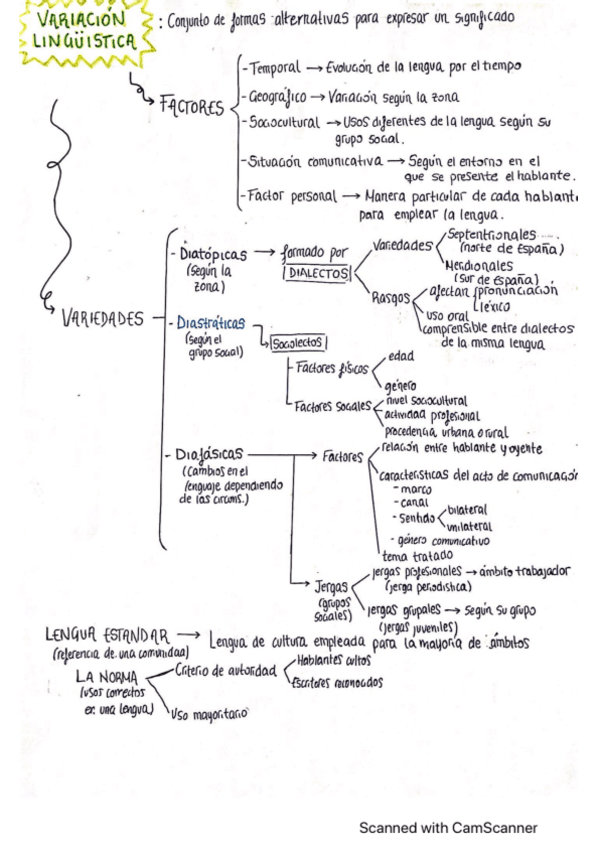 VARIACIÓN LINGÜÍSTICA : Conjunto de formas alternativas para expresar un significado
FACTORES
- Temporal → Evolución de la lengua por el tiempo
- Geográfico → Variación según la zona
- Sociocultural → Usos diferentes de la lengua según su
grupo social.
- Situación comunicativa → Según el entorno en el
que se presente el hablante.
- Factor personal → Manera particular de cada hablant
para emplear la lengua.
VARIEDADES
- Diatópicas → formado por
(según la
zona)
DIALECTOS
Variedades
Septentrionales
(norte de España)
Meridionales
(sur de España)
Rasgos
afectan pronunciación
léxico
uso oral
comprensible entre dialectos
de la misma lengua
- Diastráticas
(según el
grupo social)
Sociolectos
- Factores físicos
edad
género
- Factores sociales
nivel sociocultural
actividad profesional
procedencia urbana o rural
- Diafásicas → Factores
(cambios en el
lenguaje dependiendo
de las circuns.)
relación entre hablante y oyente
características del acto de comunicación
- marco
- canal
- sentido
bilateral
unilateral
- género comunicativo
tema tratado
Jergas
(grupos
sociales)
jergas profesionales → ámbito trabajador
(jerga periodística)
jergas grupales → Según su grupo
(jergas juveniles)
LENGUA ESTANDAR → Lengua de cultura empleada para la mayoría de ámbitos
(referencia de una comunidad)
LA NORMA
(usos correctos
en una lengua)
Criterio de autoridad
Hablantes cultos
Escritores reconocidos
Uso mayoritario
Scanned with CamScanner